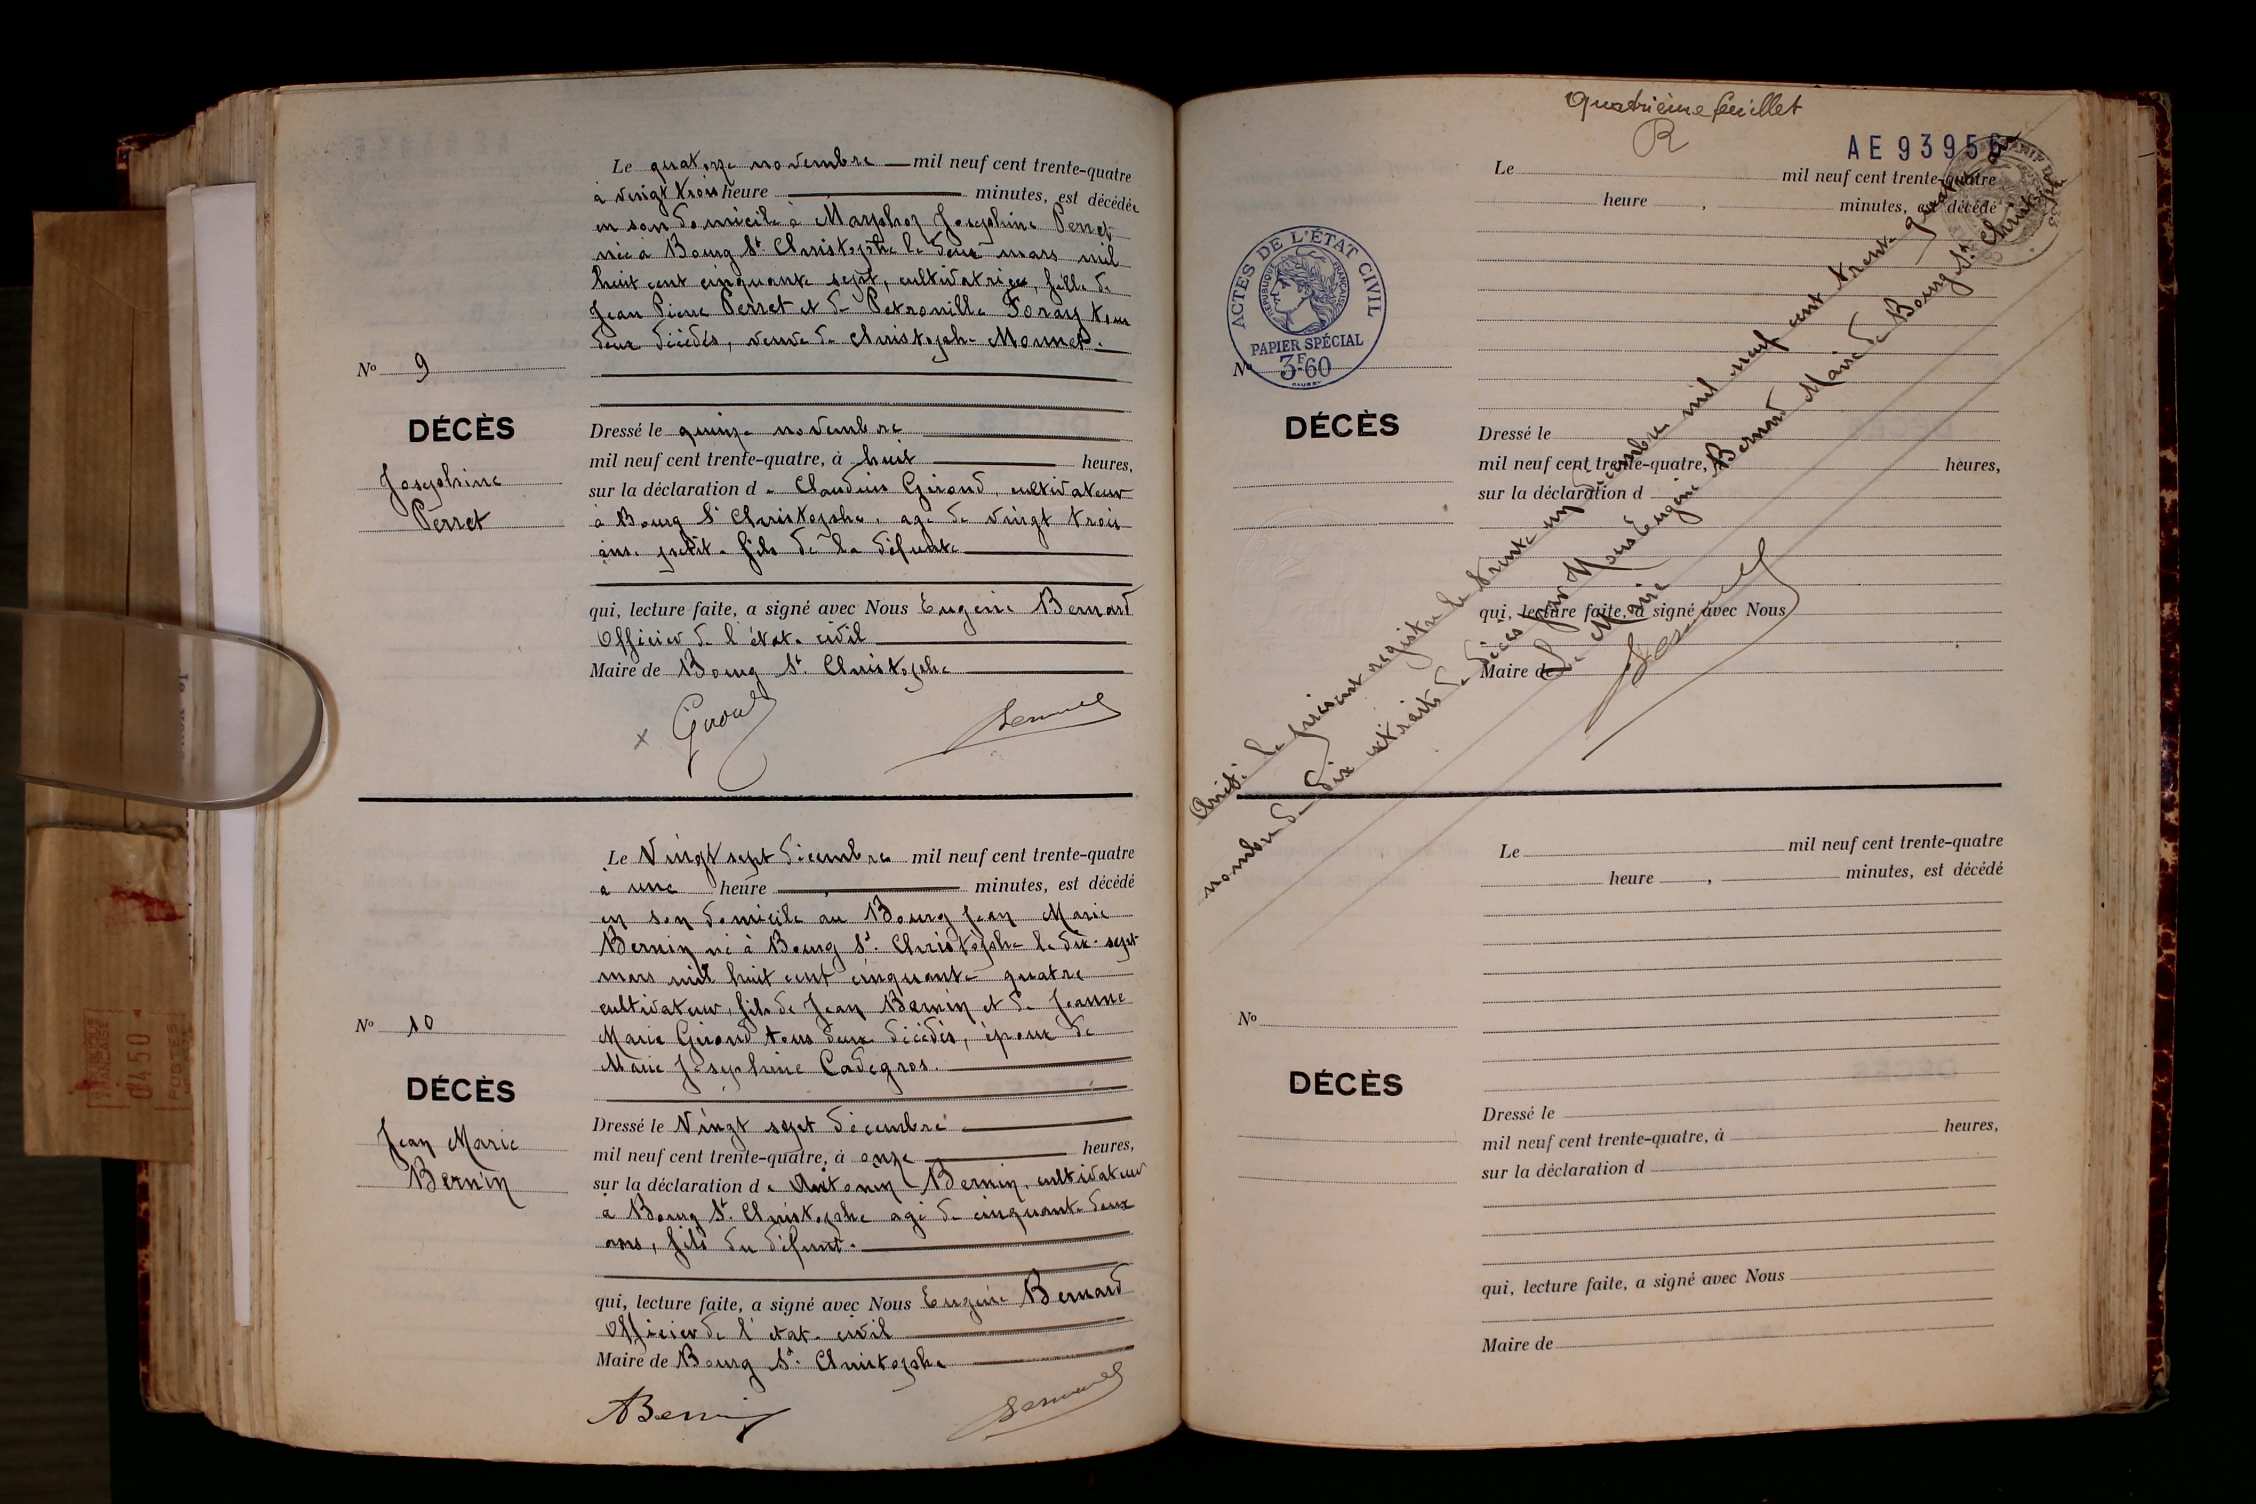 Le quatorze novembre mil neuf cent trente-quatre
à vingt trois heure minutes, est décédée
en son domicile à Marphoz Josephine Perret
née à Bourg St. Christophe le deux mars mil
huit cent cinquante sept, cultivatrice, fille de
Jean Pierre Perret et de Petronille Foray tous
deux décédés, veuve de Christophe Monnet.
No 9
DÉCÈS
Josephine
Perret
Dressé le quinze novembre
mil neuf cent trente-quatre, à huit heures,
sur la déclaration de Claudius Girond, cultivateur
à Bourg St Christophe, age de vingt trois
ans, petit-fils de la défunte
qui, lecture faite, a signé avec Nous Eugène Bernard
Officier de l'état-civil
Maire de Bourg St. Christophe
Le Vingt sept décembre mil neuf cent trente-quatre
à une heure minutes, est décédé
en son domicile au Bourg Jean Marie
Bernin né à Bourg St. Christophe le dix-sept
mars mil huit cent cinquante quatre
cultivateur, fils de Jean Bernin et de Jeanne
Marie Girond tous deux décédés, époux de
Marie Josephine Cadegros.
No 10
DÉCÈS
Jean Marie
Bernin
Dressé le Vingt sept décembre
mil neuf cent trente-quatre, à onze heures,
sur la déclaration de Antonin Bernin, cultivateur
à Bourg St. Christophe agé de cinquante deux
ans, fils du défunt.
qui, lecture faite, a signé avec Nous Eugène Bernard
Officier de l'etat-civil
Maire de Bourg St. Christophe
ABernin
Quatrième feuillet
R
AE 93956
Le mil neuf cent trente-quatre
heure , minutes, est décédé
ACTES DE L'ÉTAT CIVIL
RÉPUBLIQUE FRANÇAISE
PAPIER SPÉCIAL
3F.60
No
DÉCÈS
Dressé le
mil neuf cent trente-quatre, heures,
sur la déclaration d
qui, lecture faite, a signé avec Nous
Maire de
Arrêté le présent registre le trente un décembre mil neuf cent trente quatre au
nombre de dix extraits de décès par Nous Eugène Bernard Maire de Bourg St. Christophe
Le Maire
Le mil neuf cent trente-quatre
heure , minutes, est décédé
No
DÉCÈS
Dressé le
mil neuf cent trente-quatre, à heures,
sur la déclaration d
qui, lecture faite, a signé avec Nous
Maire de
0450
POSTES